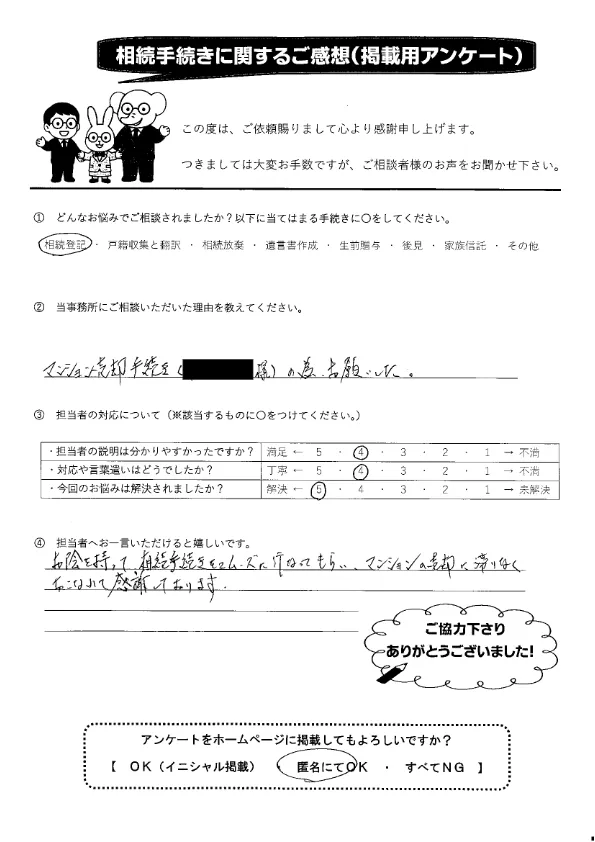 相続手続きに関するご感想(掲載用アンケート)
この度は、ご依頼賜りまして心より感謝申し上げます。
つきましては大変お手数ですが、ご相談者様のお声をお聞かせ下さい。
① どんなお悩みでご相談されましたか?以下に当てはまる手続きに○をしてください。
相続登記 ・ 戸籍収集と翻訳 ・ 相続放棄 ・ 遺言書作成 ・ 生前贈与 ・ 後見 ・ 家族信託 ・ その他
② 当事務所にご相談いただいた理由を教えてください。
マンション売却手続き( 様)の為、お願いした。
③ 担当者の対応について(※該当するものに○をつけてください。)
・担当者の説明は分かりやすかったですか? 満足 ← 5 ・ 4 ・ 3 ・ 2 ・ 1 → 不満
・対応や言葉遣いはどうでしたか? 丁寧 ← 5 ・ 4 ・ 3 ・ 2 ・ 1 → 不満
・今回のお悩みは解決されましたか? 解決 ← 5 ・ 4 ・ 3 ・ 2 ・ 1 → 未解決
④ 担当者へお一言いただけると嬉しいです。
お陰を持って、相続手続きをスムーズに行なってもらい、マンションの売却も滞りなく
おこなれて感謝しております。
ご協力下さり
ありがとうございました!
アンケートをホームページに掲載してもよろしいですか?
【 OK(イニシャル掲載) ・ 匿名にてOK ・ すべてNG 】